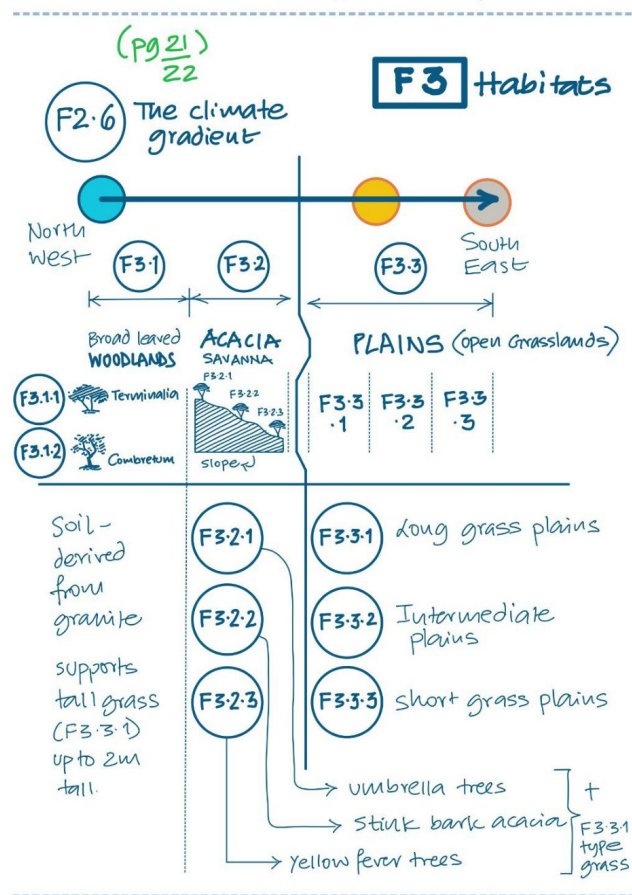 (pg 21/22)
F3 Habitats
F2.6 The climate
gradient
North
West
South
East
F3.1
F3.2
F3.3
Broad leaved
WOODLANDS
ACACIA
SAVANNA
PLAINS (open Grasslands)
F3.1.1 Terminalia
F3.1.2 Combretum
F3.2.1
F3.2.2
F3.2.3
sloped
F3.3
.1
F3.3
.2
F3.3
.3
Soil-
derived
from
granite
supports
tall grass
(F3.3.1)
up to 2m
tall.
F3.2.1
F3.2.2
F3.2.3
F3.3.1 Long grass plains
F3.3.2 Intermediate
plains
F3.3.3 short grass plains
umbrella trees
stink bark acacia
yellow fever trees
+
F3.3.1
type
grass